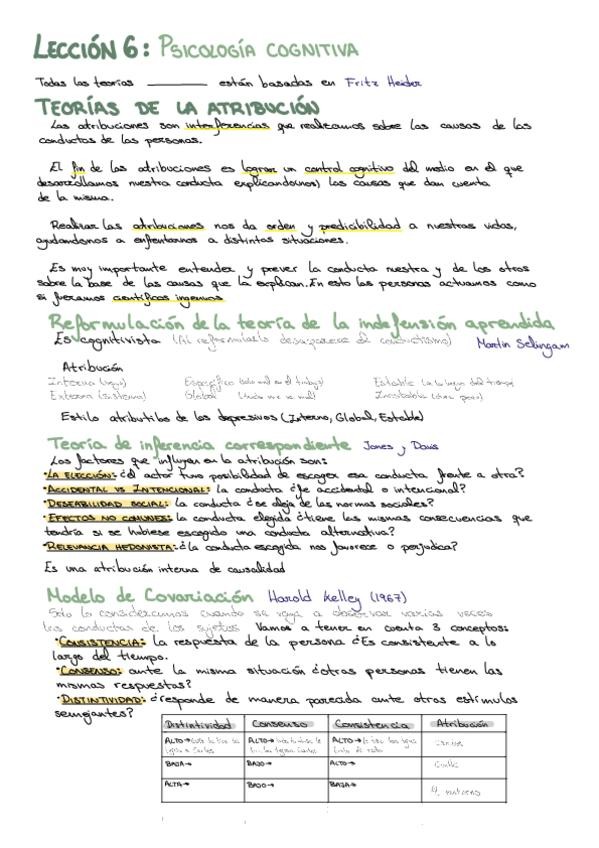 LECCIÓN 6: PSICOLOGÍA COGNITIVA
Todas las teorías ________ están basadas en Fritz Heider
TEORÍAS DE LA ATRIBUCIÓN
Las atribuciones son interferencias que realizamos sobre las causas de las
conductas de las personas.
El fin de las atribuciones es lograr un control cognitivo del medio en el que
desarrollamos nuestra conducta explicando(nos) las causas que dan cuenta
de la misma.
Realizar las atribuciones nos da orden y predicibilidad a nuestras vidas,
ayudandonos a enfrentarnos a distintas situaciones.
Es muy importante entender y prever la conducta nuestra y de los otros
sobre la base de las causas que la explican. En esto las personas actuamos como
si fueramos científicos ingenuos
Reformulación de la teoría de la indefensión aprendida
Es cognitivista (Al reformularlo desaparece el conductismo) Martin Selingam
Atribución
Interna (yo) Específico (solo en el trabajo) Estable (a lo largo del tiempo
Externa (sistema) Global Inestable
Estilo atributibo de los depresivos (Interno, Global, Estable)
Teoría de inferencia correspondiente Jones y Davis
Los factores que influyen en la atribución son:
·LA ELECCIÓN: ¿el actor tuvo posibilidad de escoger esa conducta frente a otra?
·ACCIDENTAL VS INTENCIONAL: la conducta ¿fue accidental o intencional?
·DESEABILIDAD SOCIAL: la conducta ¿se aleja de las normas sociales?
·EFECTOS NO COMUNES: la conducta elegida ¿tiene las mismas consecuencias que
tendría si se hubiese escogido una conducta alternativa?
·RELEVANCIA HEDONISTA: ¿la conducta escogida nos favorece o perjudica?
Es una atribución interna de causalidad
Modelo de Covariación Harold Kelley (1967)
Solo lo consideramos cuando se vaya a observar varias veces
las conductas de los sujetos Vamos a tener en cuenta 3 conceptos:
·CONSISTENCIA: la respuesta de la persona ¿Es consistente a lo
largo del tiempo.
·CONSENSO: ante la misma situación ¿otras personas tienen las
mismas respuestas?
·DISTINTIVIDAD: ¿responde de manera parecida ante otros estímulos
semejantes?
Distintividad Consenso Consistencia Atribución
ALTO→ ALTO→ ALTO→
BAJA→ BAJO→ ALTO→
ALTA→ BAJO→ BAJA→ entorno